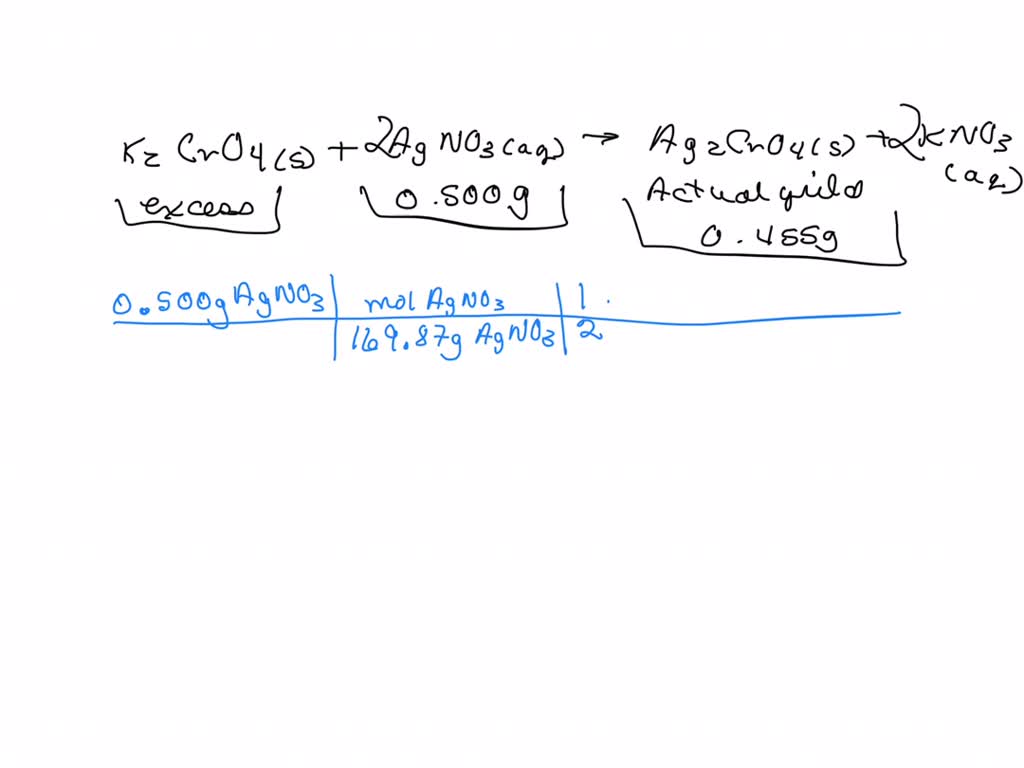 K2 CrO4(s) + 2AgNO3(aq) → Ag2CrO4(s) + 2KNO3 (aq)
excess 0.500g Actual yield
0.455g
0.500g AgNO3 | mol AgNO3 | 1
169.87g AgNO3 | 2